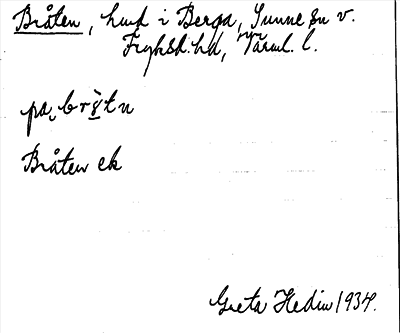 Bråten, hmd i Berga, Sunne sn v.
Fryksd. hd, Värml. l.
pa, brå̀tn
Bråten ek
Greta Hedin 1934.